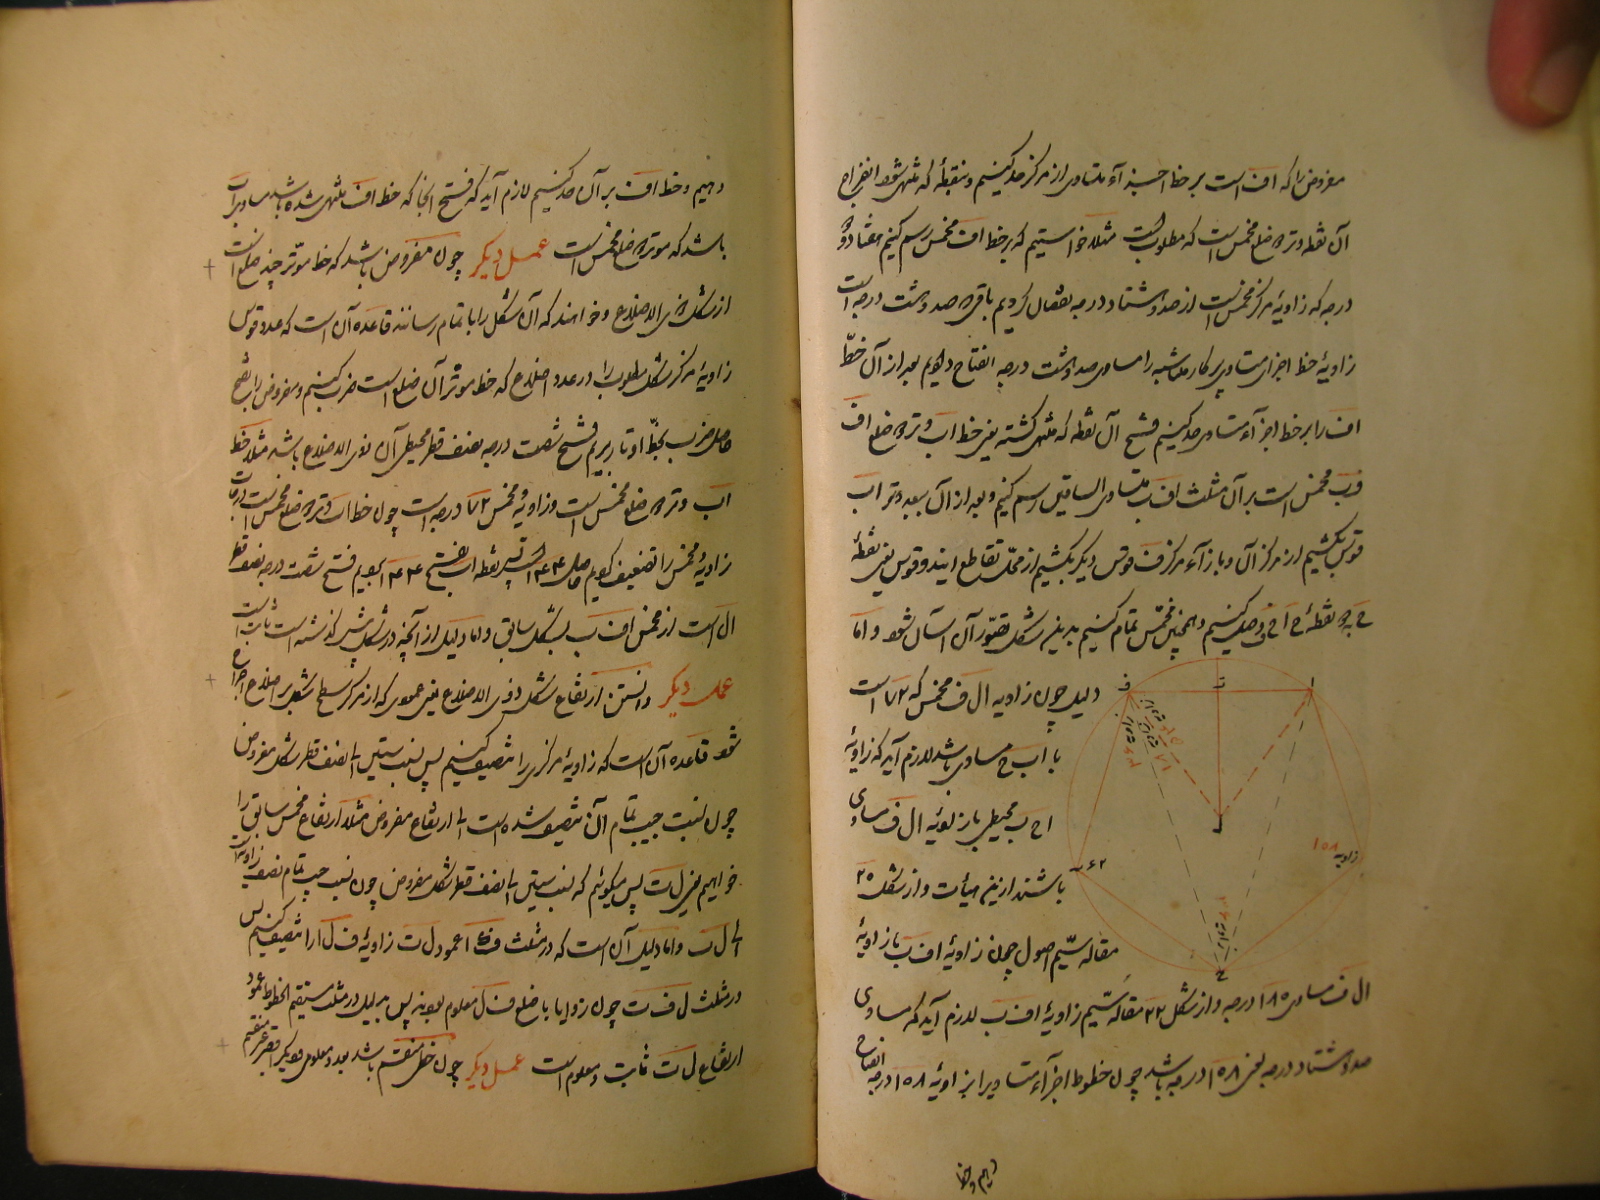 مفروض را که اف است بر خط اجزآء متساوی از مرکز حد کنیم و بنقطۀ که منتهی شود انفراج
آن نقطه وتر دو ضلع مخمس است که مطلوب است مثلا خواستیم که بر خط اف مخمس رسم کنیم هفتاد و دو
درجه که زاویۀ مرکز مخمس است از صد و هشتاد درجه نقصان کردیم باقی صد و هشت درجه است
زاویۀ خط اجزای متساوی پرکار را مساوی صد و هشت درجه انفتاح دهیم بعد از آن خط
اف را بر خط اجزآء متساوی حد کنیم فسح آن نقطه که منتهی گشته یعنی خط اب وتر دو ضلع اف
فب مخمس است بر آن مثلث اف ب متساوی الساقین رسم کنیم و بعد از آن ببعد وتر اب
قوس بکشیم از مرکز آن و بازآء مرکز ف قوس دیگر بکشیم از محل تقاطع ایندو قوس یعنی نقطۀ
ح به نقطۀ ح ا ح ف وصل کنیم و همچنین مخمس تمام کنیم بدینشکل تصور آن آسان شود و اما
دلیل چون زاویه ال ف مخمس که ۷۲ است
با اب ح مساوی باشد لازم آید که زاویۀ
اح ب محیطی باز زاویه ال ف مساوی
باشند از ین هیأت و از شکل ۲۰
مقاله سیم اصول چون زاویۀ اف ب با زاویۀ
ال ف مساوی ۱۸۰ درجه و از شکل ۲۲ مقاله سیم زاویۀ اف ب لازم آید که مساوی
صد و هشتاد درجه یعنی ۱۰۸ درجه باشد چون خطوط اجزآء متساویرا بزاویه ۱۰۸ درجه انفتاح
دهیم و خط
ف
ت
ا
ل
زاویه ۱۰۸
ب
ح
دهیم و خط اف بر آن حد کنیم لازم آید که فسح انجا که خط اف منتهی شده باشد مساوی اب
باشد که موتر دو ضلع مخمس است عمل دیکر چون مفروض باشد که خط موتر چند ضلع است
از شکل ذی الاضلاع و خواهند که آن شکل را باتمام رسانند قاعده آن است که عدد قوس
زاویۀ مرکز شکل مطلوب را در عدد اضلاع که خط موتر آن ضلع است ضرب کنیم و مفروض را بفسح
حاصل ضرب بخط اوتار بریم فسح شصت درجه نصف قطر محیطی آن ذی الاضلاع باشد مثلا خط
اب وتر دو ضلع مخمس است و زاویۀ مخمس ۷۲ درجه است چون خط اب وتر دو ضلع مخمس است درجات
زاویۀ مخمس را تضعیف کردیم حاصل ۱۴۴ است پس نقطه اب بفسح ۱۴۴ بریم فسح شصت درجه نصف قطر
ال است از مخمس اف ب بشکل سابق و اما دلیل از آنچه در شکل پیش گذشته است ثابت است
عمل دیکر دانستن ارتفاع شکل ذی الاضلاع یعنی عمودی که از مرکز سطح شکل بر اضلاع اخراج
شود قاعده آن است که زاویۀ مرکزی را تنصیف کنیم پس نسبت ستین الی نصف قطر شکل مفروض
چون نسبت جیب تمام آن تنصیف شده است الی ارتفاع مفروض مثلا ارتفاع مخمس سابق را
خواهیم یعنی ل ت پس میکوئیم که نسبت ستین الی نصف قطر شکل مفروض چون نسبت جیب تمام نصف زاویه است
الی ل ت و اما دلیل آن است که در مثلث ف ل ا عمود ل ت زاویۀ ف ل ا را تنصیف کند پس
در مثلث ل ف ت چون زوایا با ضلع ف ل معلوم بودند پس بدلیل در مثلث مستقیم الخطوط عمود
ارتفاع ل ت ثابت و معلوم است عمل دیکر چون خطی منقسم باشد بعدد معلوم و دیکر اقصر غیر منقسم